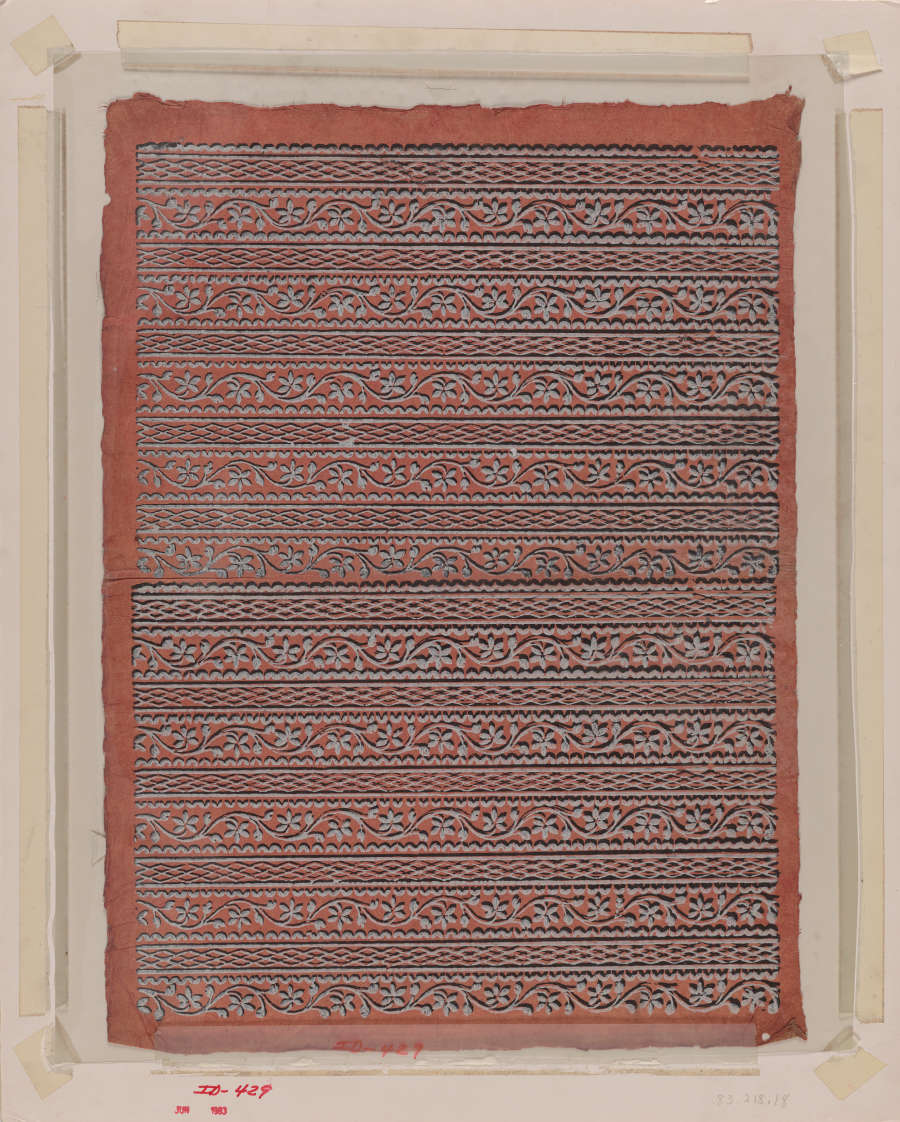 ID-429
ID-429
JUN 1983
83.218.18